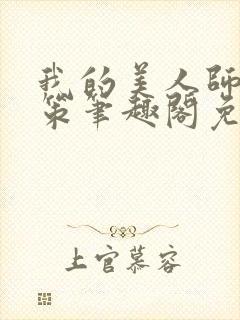 我的美人师
策笔趣阁免
上官慕容